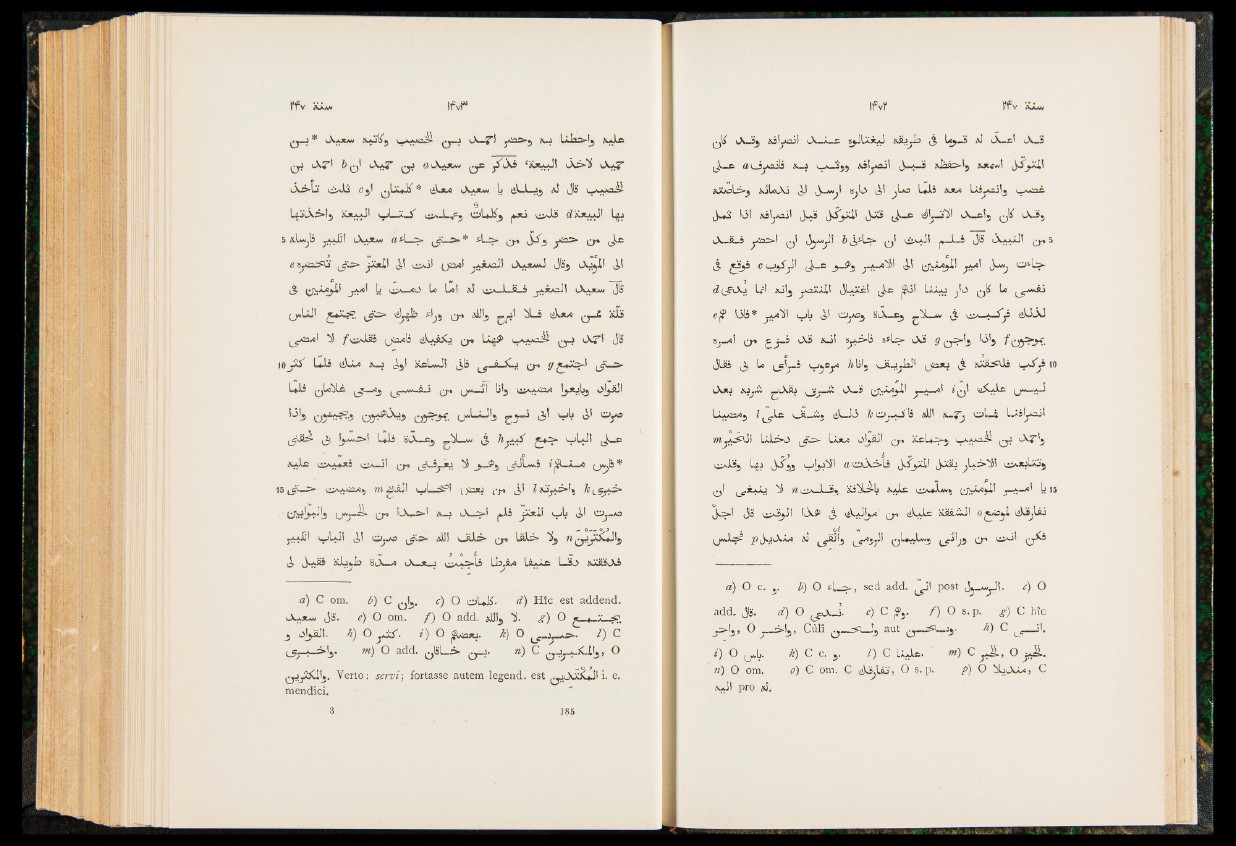 سنة ٢٤٧ ١٤٧٢
قد اعدّ له قوما فى طريقه ليغتالوه عند انصرافه وقد كان
المتوكّل اسمعه واحفظه قبل انصرافه ووثب به فانصرف a على
غضب وانصرفنا معه فلمّا صار الى داره ارسل الى ندمائه وخاصّته
وقد كان واعد الاتراك على قتل المتوكّل قبل انصرافه اذا ثمل
5 من النبيذ قال فلم البث ان جاءنى b الرسول ان احضر فقد
جاءت رسل امير المؤمنين الى الامير وهو على الركوب c فوقع فى
نفسى ما كان دار بيننا انّهم على اغتيال المنتصر وانه انما يُدعى d
لذلك فركبت فى سلاح وعدّة وصرت الى باب الامير *فاذا هم e
يموجون f واذا واجن g قد جاءه فاخبره انه قد فرغ من امره
10 فركب فلحقتُه فى بعض الطريق وانا h مرعوب فرأى ما بى فقال
ليس عليك انّ i امير المؤمنين قد شرق بقدح شربه بعد
انصرافنا فمات رحمه الله فاكبرت k ذلك وشقّ علىّ l ومضينا
واحمد بن الخصيب وجماعة من القواد معنا حتى دخلنا الحَيْر m
وتتابعت الاخبار بقتل المتوكّل فاخذت a الابواب ووُكّل بها وقلت
15 يا امير المؤمنين وسلّمت عليه بالخلافة وقلت n لا ينبغى ان
نفارقك لموضع o الشفقة عليك من مواليك فى هذا الوقت قال اجل
فكن انت من ورائى وسليمان الرومىّ وأُلقى له منديل p فجلس
a) O c. و. b) O جاء, sed add. الىّ post الرسول. c) O
add. قال. d) O يدعى. e) C وهم. f) O s. p. g) C hîc
C h) aut O
i) O بان. k) C c. و. l) C علينا. m) C الخير, O الحير.
n) O om. o) C om. C تفارقك, O s. p. p) O منديلا, C
اليه pro له.
سنة ٢٤٧ ١٤٧٣
عليه واحطنا به وحضر احمد بن الخصيب وكاتبه سعيد *بن
حميد لاخذ البيعة، فذكر عن سعيد a بن حميد ان b احمد بن
الخصيب قال له ويلك يا سعيد معك *كلمتان او c ثلث تأخذ
بها البيعة d قلت نعم وكلمات وعملت كتاب البيعة واخذتها
5 على من حضر وكلّ من جاء *حتى جاء a سعيد الكبير فارسله
الى المؤيّد وقال لسعيد الصغير امض انت الى المعتزّ حتى تُحضره e
قال سعيد الصغير فقلت له امّا ما دمت يا امير المؤمنين فى
قلّة ممن معك فلا ابرح والله من وراء ظهرك حتى يجتمع الناس
قال احمد بن الخصيب ههنا من يكفيك فامض فقلت f لا امضى
10 حتى يجتمع g من يكفى فانى الساعة اولى به منك فلمّا كثر
القوّاد وبايعوا مضيت وانا آئس من نفسى ومعى غلامان فلمّا
صرت الى باب ابى نوح والناس يموجون ويذهبون ويجيئون واذا
على الباب جمع كبير h فى سلاح وعدّة فلمّا احسّوا بى لحقنى
*فارس منهم i فسألنى وهو لا يعرفنى من انت فعمّيت عليه
15 خبرى k واخبرته l انى من بعض اصحاب الفتح m ومضيت حتى
صرت الى باب المعتزّ فلم اجد به احدا من الحرس والبوّابين
والمكبّرين n ولا خلقا من خلق الله حتى صرت الى الباب الكبير
فدققته دقّا عنيفا مفرطا فأُجبت بعد مدّة طويلة فقيل لى
a) C om. b) C وان. c) O كلمات. d) Hîc est addend.
قال سعيد. e) O om. f) O add. لا والله. g) O يجتمع
و القواد. h) O كثير. i) O بعضهم. k) O l) C
واخبرى. m) O add. بن خاقان. n) C والمكبرين, O
والمكثرين. Verto: servi; fortasse autem legend. est i. e.
mendici.
3 185